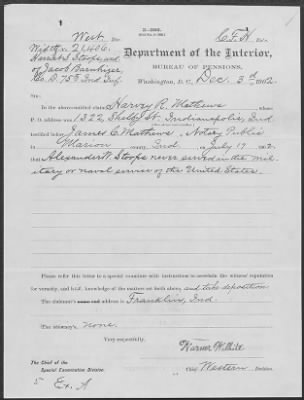 West. Div.
C.F.H. Ex'r.
Wid. Ctf. 26486
Harriet Stoops, wid.
of Jacob Barnhizer
Co. D. 75th Ind. Inf.
Department of the Interior,
BUREAU OF PENSIONS,
Washington, D. C., Dec. 3d, 1902
Sir:
In the above-entitled claim Harvey R. Mathews
P. O. address was 1322 Shelby St. Indianapolis, Ind
testified before James C Mathews, Notary Public
in Marion county Ind on July 17 1902
that Alexander W. Stoops never served in the mil-
itary or naval service of the United States.
Please refer this letter to a special examiner with instructions to ascertain the witness' reputation
for veracity, and knowledge of the matters set forth above, and take deposition
The claimant's address is Franklin, Ind.
The attorney's none.
Very respectfully,
Warner Willhite
Chief Western Division.
The Chief of the
Special Examination Division.
5 Ex. A